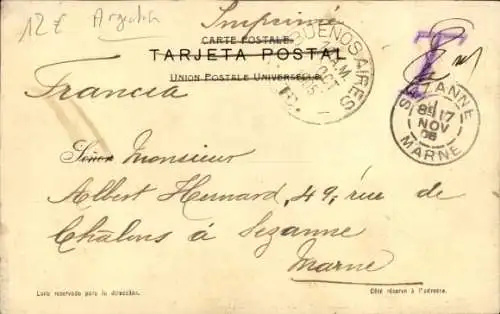 12 € Argentin
Imprimé
CARTE POSTALE
TARJETA POSTAL
UNION POSTALE UNIVERSELLE
BUENOS AIRES
OCT
T
SEZANNE
8E 17
NOV
06
MARNE
Francia
Señor Monsieur
Albert Hesnard, 49, rue de
Châlons à Sezanne
Marne
Lado reservado para la dirección.
Côté réservé à l'adresse.